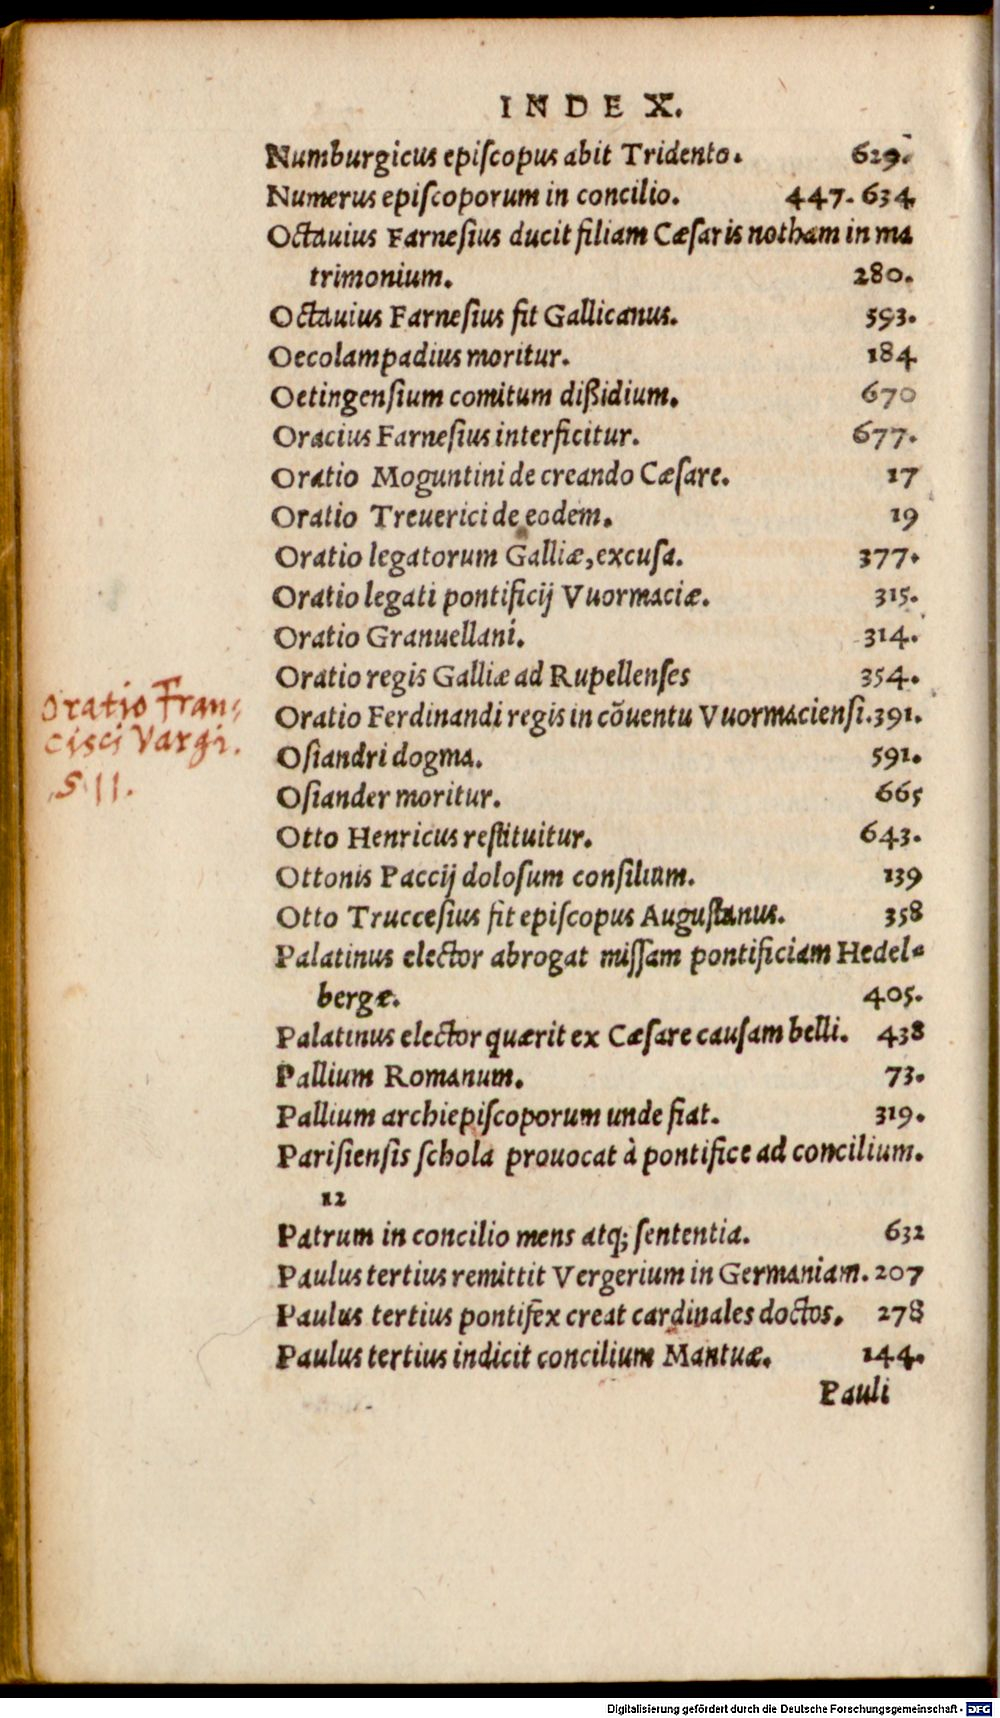 INDEX.
Numburgicus epiſcopus abit Tridento. 629.
Numerus epiſcoporum in concilio. 447. 634
Octauius Farneſius ducit filiam Cæſaris notham in ma
trimonium. 280.
Octauius Farneſius fit Gallicanus. 593.
Oecolampadius moritur. 184
Oetingenſium comitum dißidium. 670
Oracius Farneſius interficitur. 677.
Oratio Moguntini de creando Cæſare. 17
Oratio Treuerici de eodem. 19
Oratio legatorum Galliæ, excuſa. 377.
Oratio legati pontificij Vuormaciæ. 315.
Oratio Granuellani. 314.
Oratio regis Galliæ ad Rupellenſes 354.
Oratio Fran-
Oratio Ferdinandi regis in cõuentu Vuormacienſi. 391.
cisci Vargi.
Oſiandri dogma. 591.
511.
Oſiander moritur. 665
Otto Henricus reſtituitur. 643.
Ottonis Paccij doloſum conſilium. 139
Otto Trucceſius fit epiſcopus Auguſtanus. 358
Palatinus elector abrogat miſſam pontificiam Hedel-
bergæ. 405.
Palatinus elector quærit ex Cæſare cauſam belli. 438
Pallium Romanum. 73.
Pallium archiepiſcoporum unde fiat. 319.
Pariſienſis ſchola prouocat à pontifice ad concilium.
12
Patrum in concilio mens atq; ſententia. 632
Paulus tertius remittit Vergerium in Germaniam. 207
Paulus tertius pontifex creat cardinales doctos. 278
Paulus tertius indicit concilium Mantuæ. 144.
Pauli
Digitalisierung gefördert durch die Deutsche Forschungsgemeinschaft - DFG